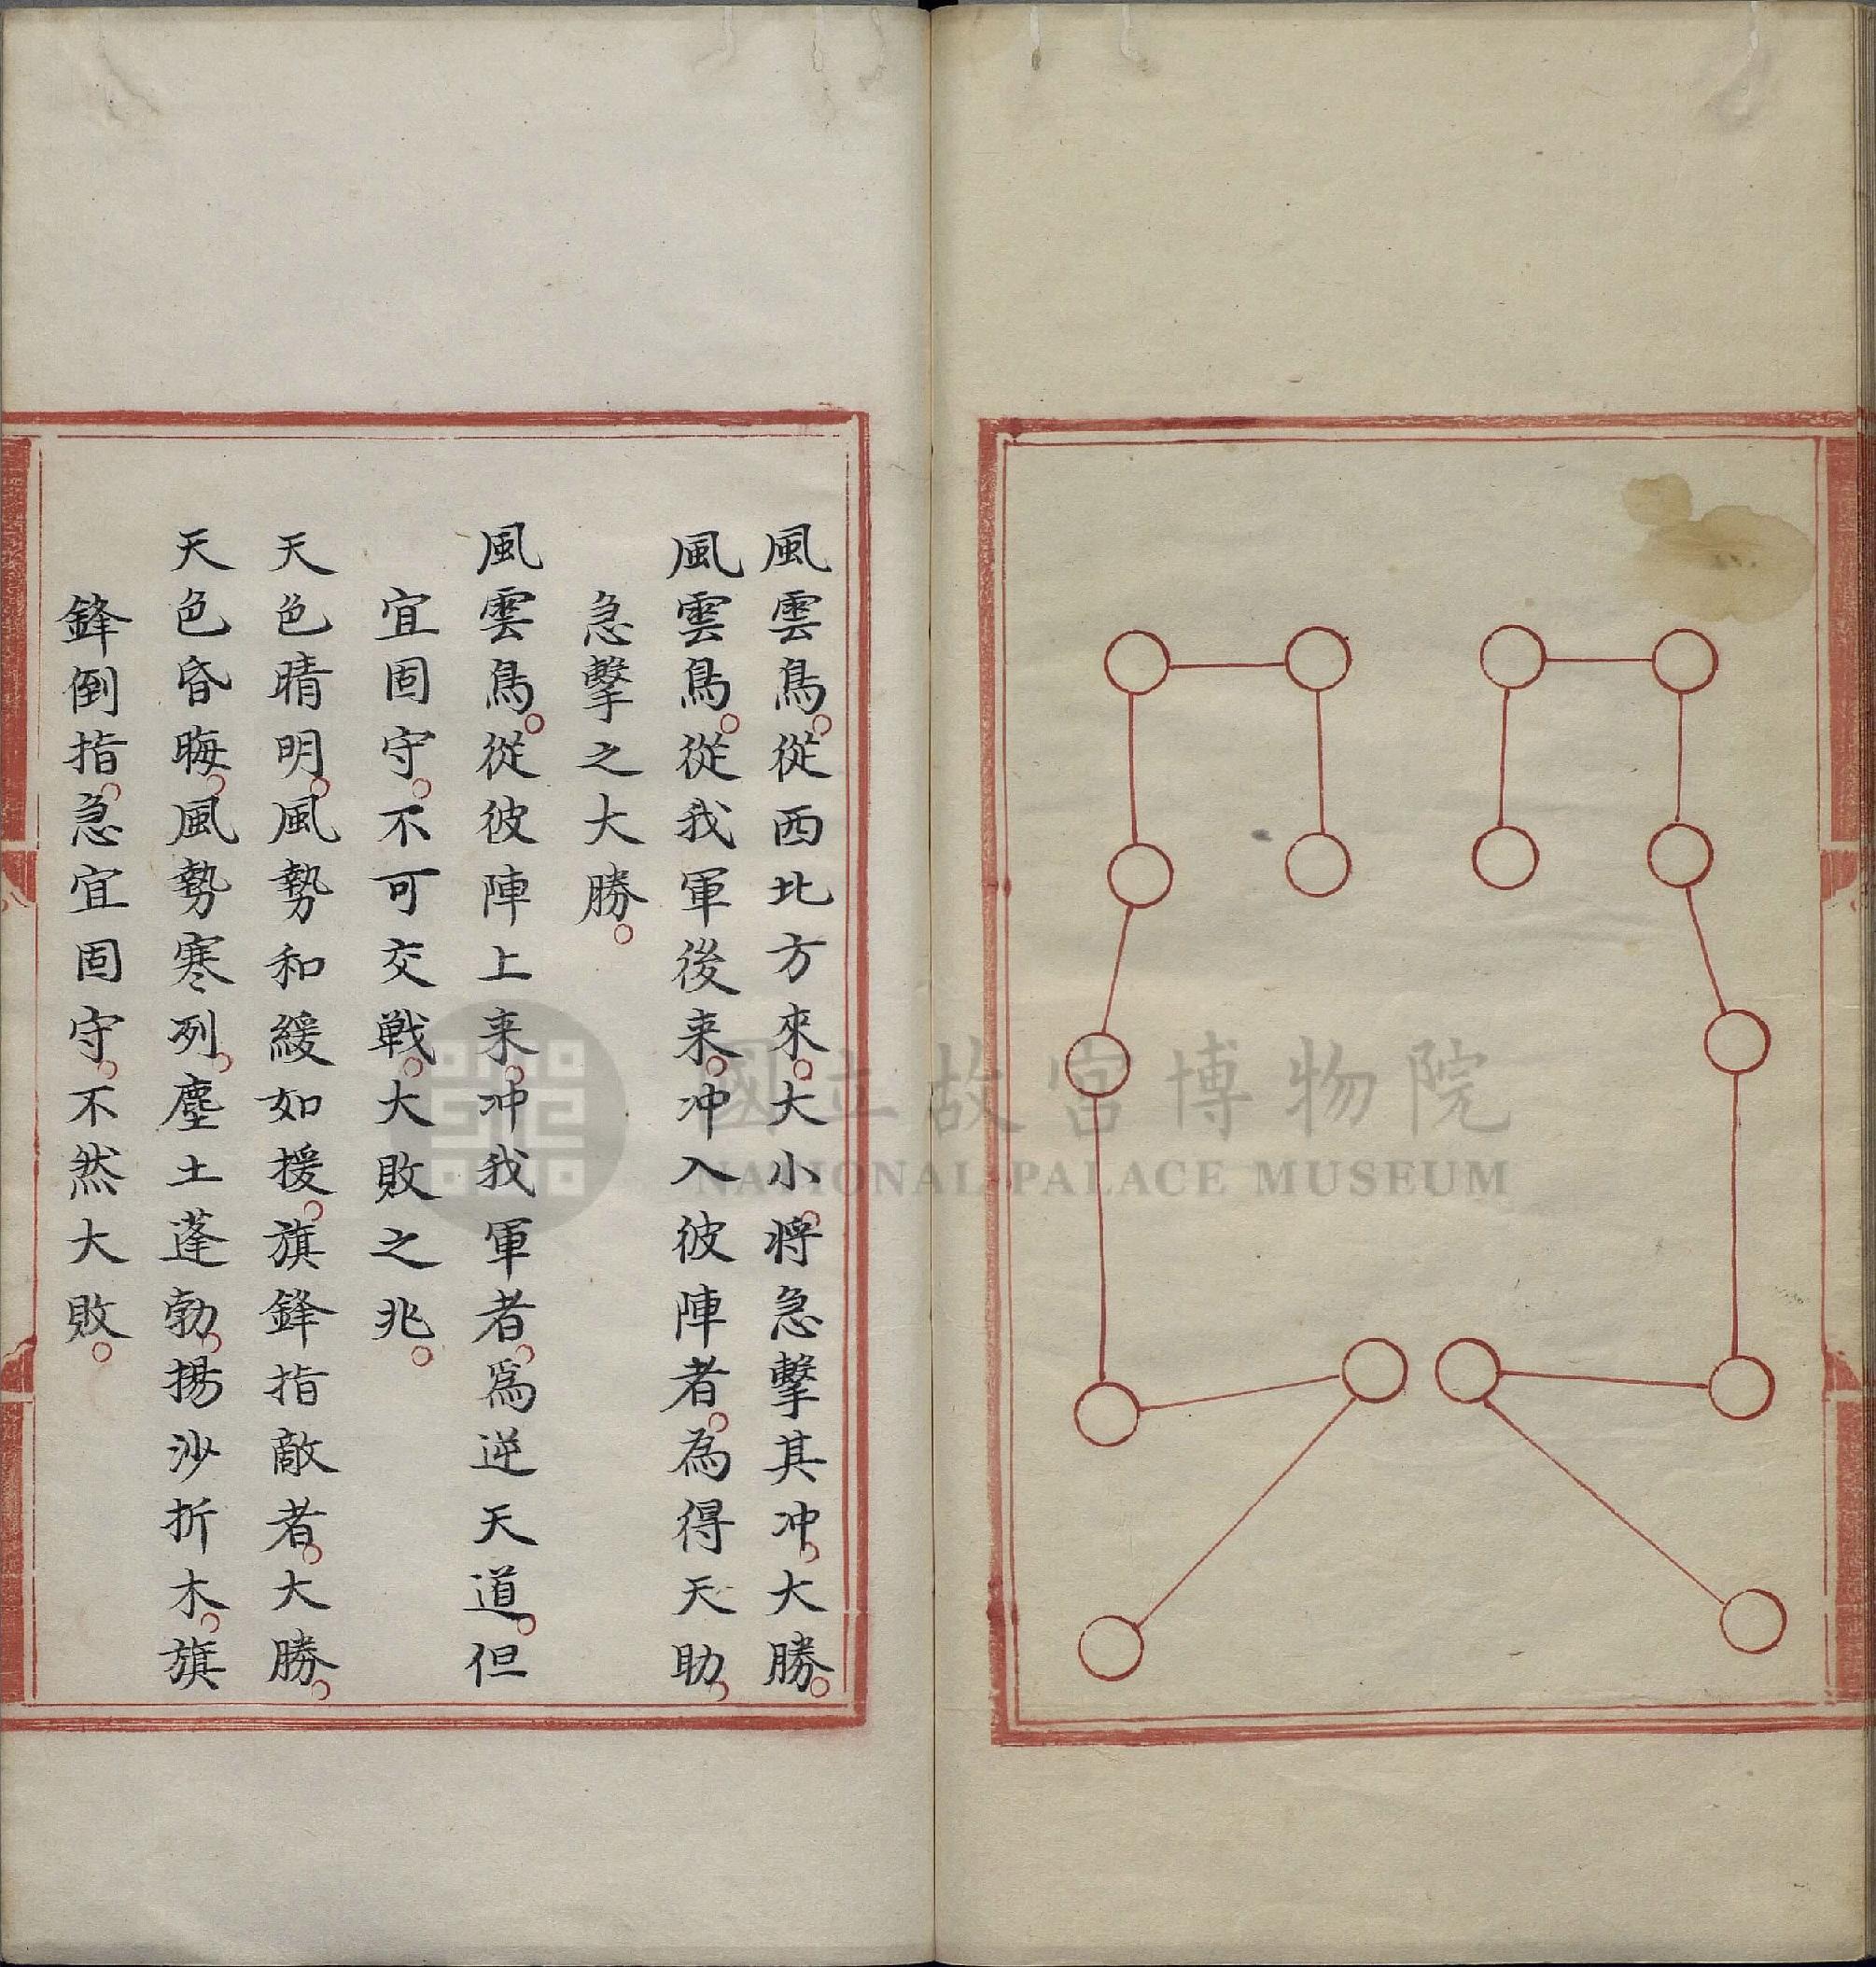 風雲鳥從西北方來大小將急擊其冲大勝
風雲鳥從我軍後来冲入彼陣者為得天助
急擊之大勝
風雲鳥從彼陣上来冲我軍者爲逆天道但
宜固守不可交戰大敗之兆
天色晴明風勢和緩如援旗鋒指敵者大勝
天色昏晦風勢寒列塵土蓬勃揚沙折木旗
鋒倒指急宜固守不然大敗
國立故宮博物院
NATIONAL PALACE MUSEUM